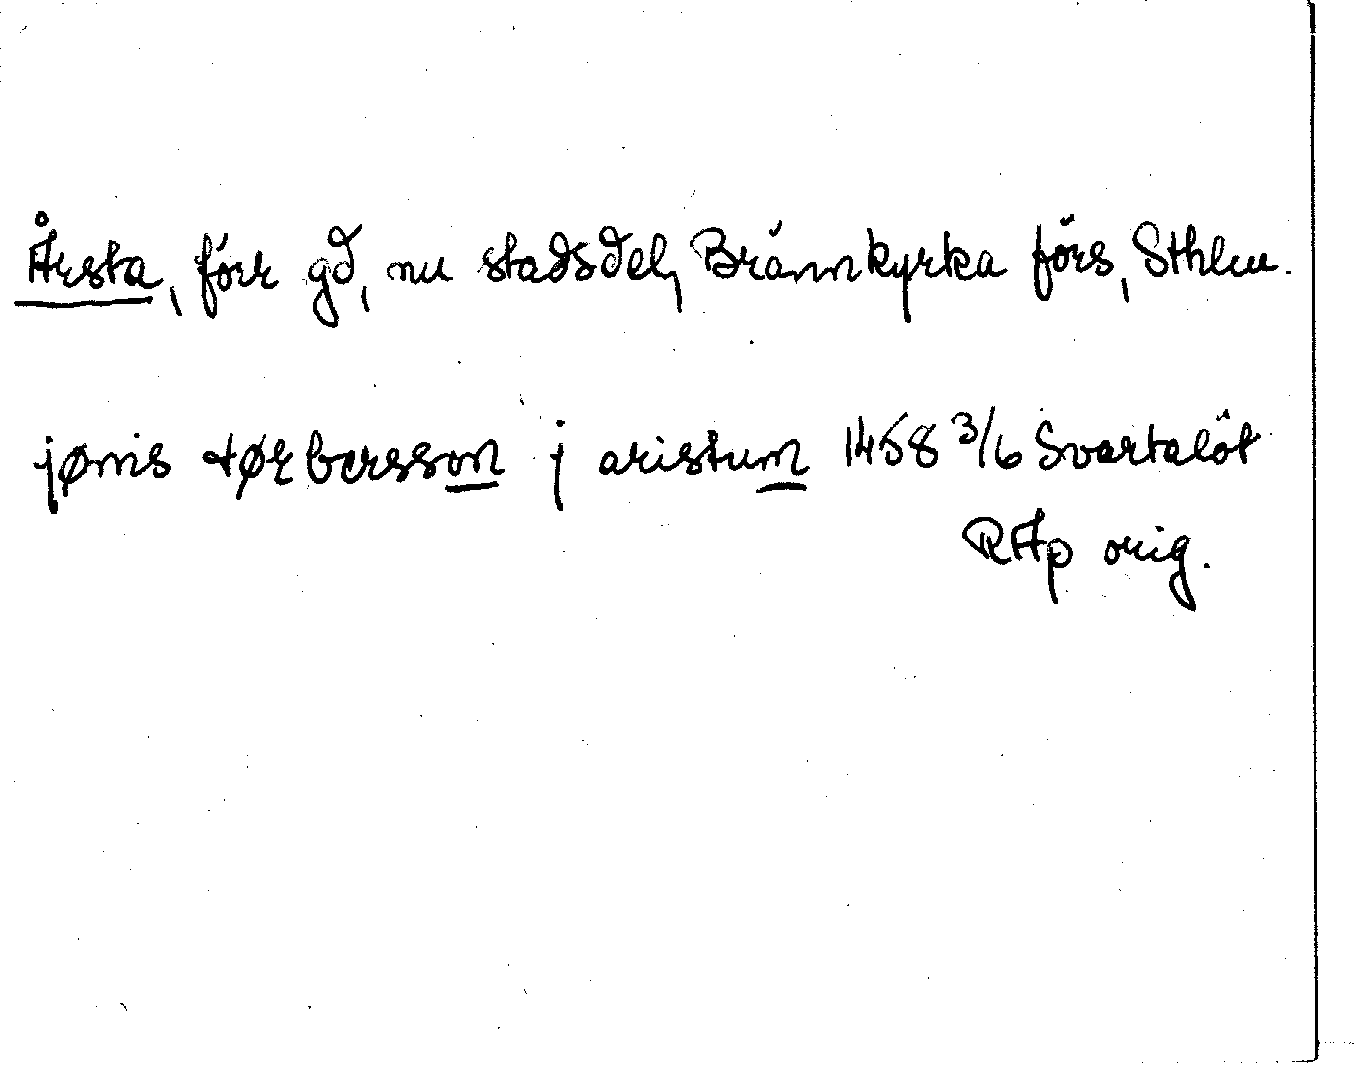 Årsta, förr gd, nu stadsdel, Brännkyrka förs, Sthlm.
jønis tørbersson j aristum 1458 3/6 Svartalöt
RAp orig.